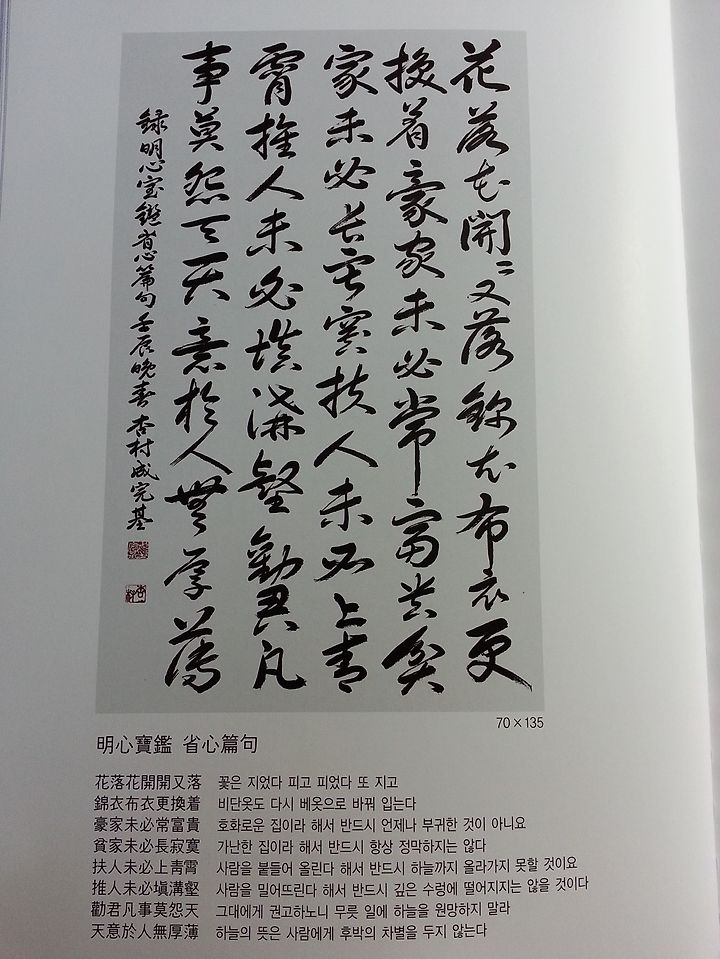 花落花開〻又落錦衣布衣更
換着豪家未必常富貴貧
家未必長寂寞扶人未必上青
霄推人未必塡溝壑勸君凡
事莫怨天天意於人無厚薄
錄明心宝鑑省心篇句 壬辰晚春 杏村成完基
杏村
70×135
明心寶鑑 省心篇句
花落花開開又落 꽃은 지었다 피고 피었다 또 지고
錦衣布衣更換着 비단옷도 다시 베옷으로 바꿔 입는다
豪家未必常富貴 호화로운 집이라 해서 반드시 언제나 부귀한 것이 아니요
貧家未必長寂寞 가난한 집이라 해서 반드시 항상 적막하지는 않다
扶人未必上靑霄 사람을 붙들어 올린다 해서 반드시 하늘까지 올라가지 못할 것이요
推人未必塡溝壑 사람을 밀어뜨린다 해서 반드시 깊은 수렁에 떨어지지는 않을 것이다
勸君凡事莫怨天 그대에게 권고하노니 무릇 일에 하늘을 원망하지 말라
天意於人無厚薄 하늘의 뜻은 사람에게 후박의 차별을 두지 않는다